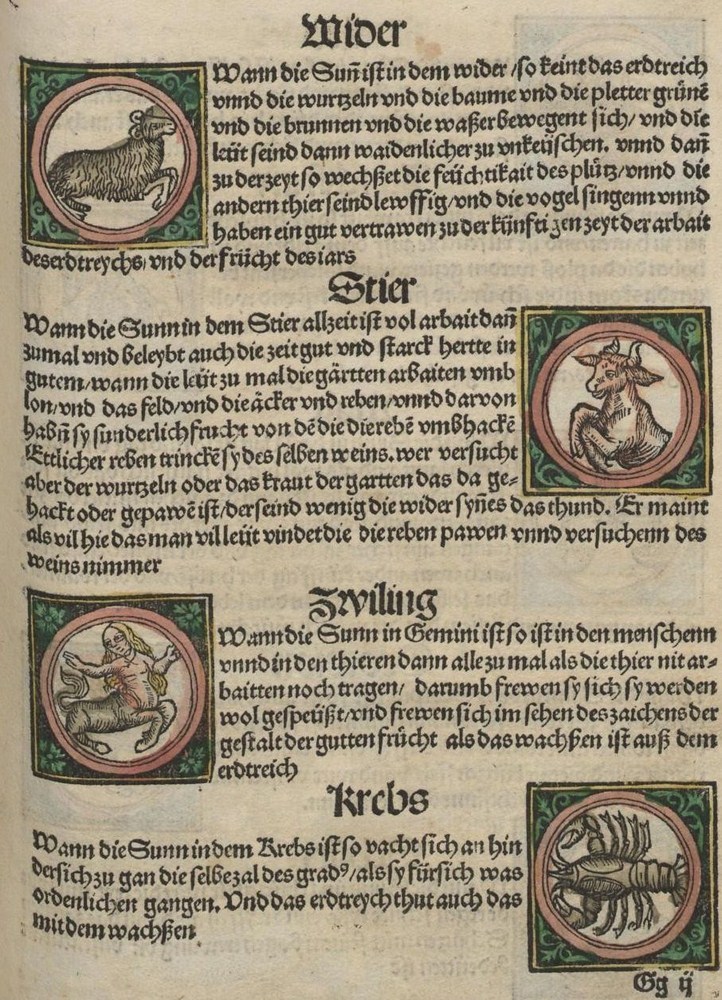 Wider
Wann die Sun̄ ist in dem wider / so keint das erdtreich
vnnd die wurtzeln vnd die baume vnd die pletter grünē
vnd die brunnen vnd die waßer bewegent sich / vnd die
leüt seind dann waidenlicher zu vnkeüschen. vnnd dañ
zu der zeyt so wechßet die feüchtikait des plütz / vnnd die
andern thier seind lewffig / vnd die vogel singenn vnnd
haben ein gut vertrawen zu der künfftigen zeyt der arbait
des erdtreychs / vnd der frücht des iars
Stier
Wann die Sunn in dem Stier allzeit ist vol arbait dañ
zumal vnd beleybt auch die zeit gut vnd starck hertte in
gutem / wann die leüt zu mal die gärtten arbaiten vmb
lon / vnd das feld / vnd die äcker vnd reben / vnnd darvon
habñ sy sunderlich frucht von dē die die rebē vmbhackē
Ettlicher reben trinckē sy des selben weins. wer versucht
aber der wurtzeln oder das kraut der gartten das da ge⸗
hackt oder gepawē ist / der seind wenig die wider syñes das thund. Er maint
als vil hie das man vil leüt vindet die die reben pawen vnnd versuchenn des
weins nimmer
Zwiling
Wann die Sunn in Gemini ist so ist in den menschenn
vnnd in den thieren dann alle zu mal als die thier nit ar⸗
baitten noch tragen / darumb frewen sy sich sy werden
wol gespeüßt / vnd frewen sich im sehen des zaichens der
gestalt der gutten frücht als das wachßen ist auß dem
erdtreich
Krebs
Wann die Sunn in dem Krebs ist so vacht sich an hin
dersich zu gan die selbe zal des gradꝰ / als sy fürsich was
ordenlichen gangen. Vnd das erdtreych thut auch das
mit dem wachßen
Gg ij